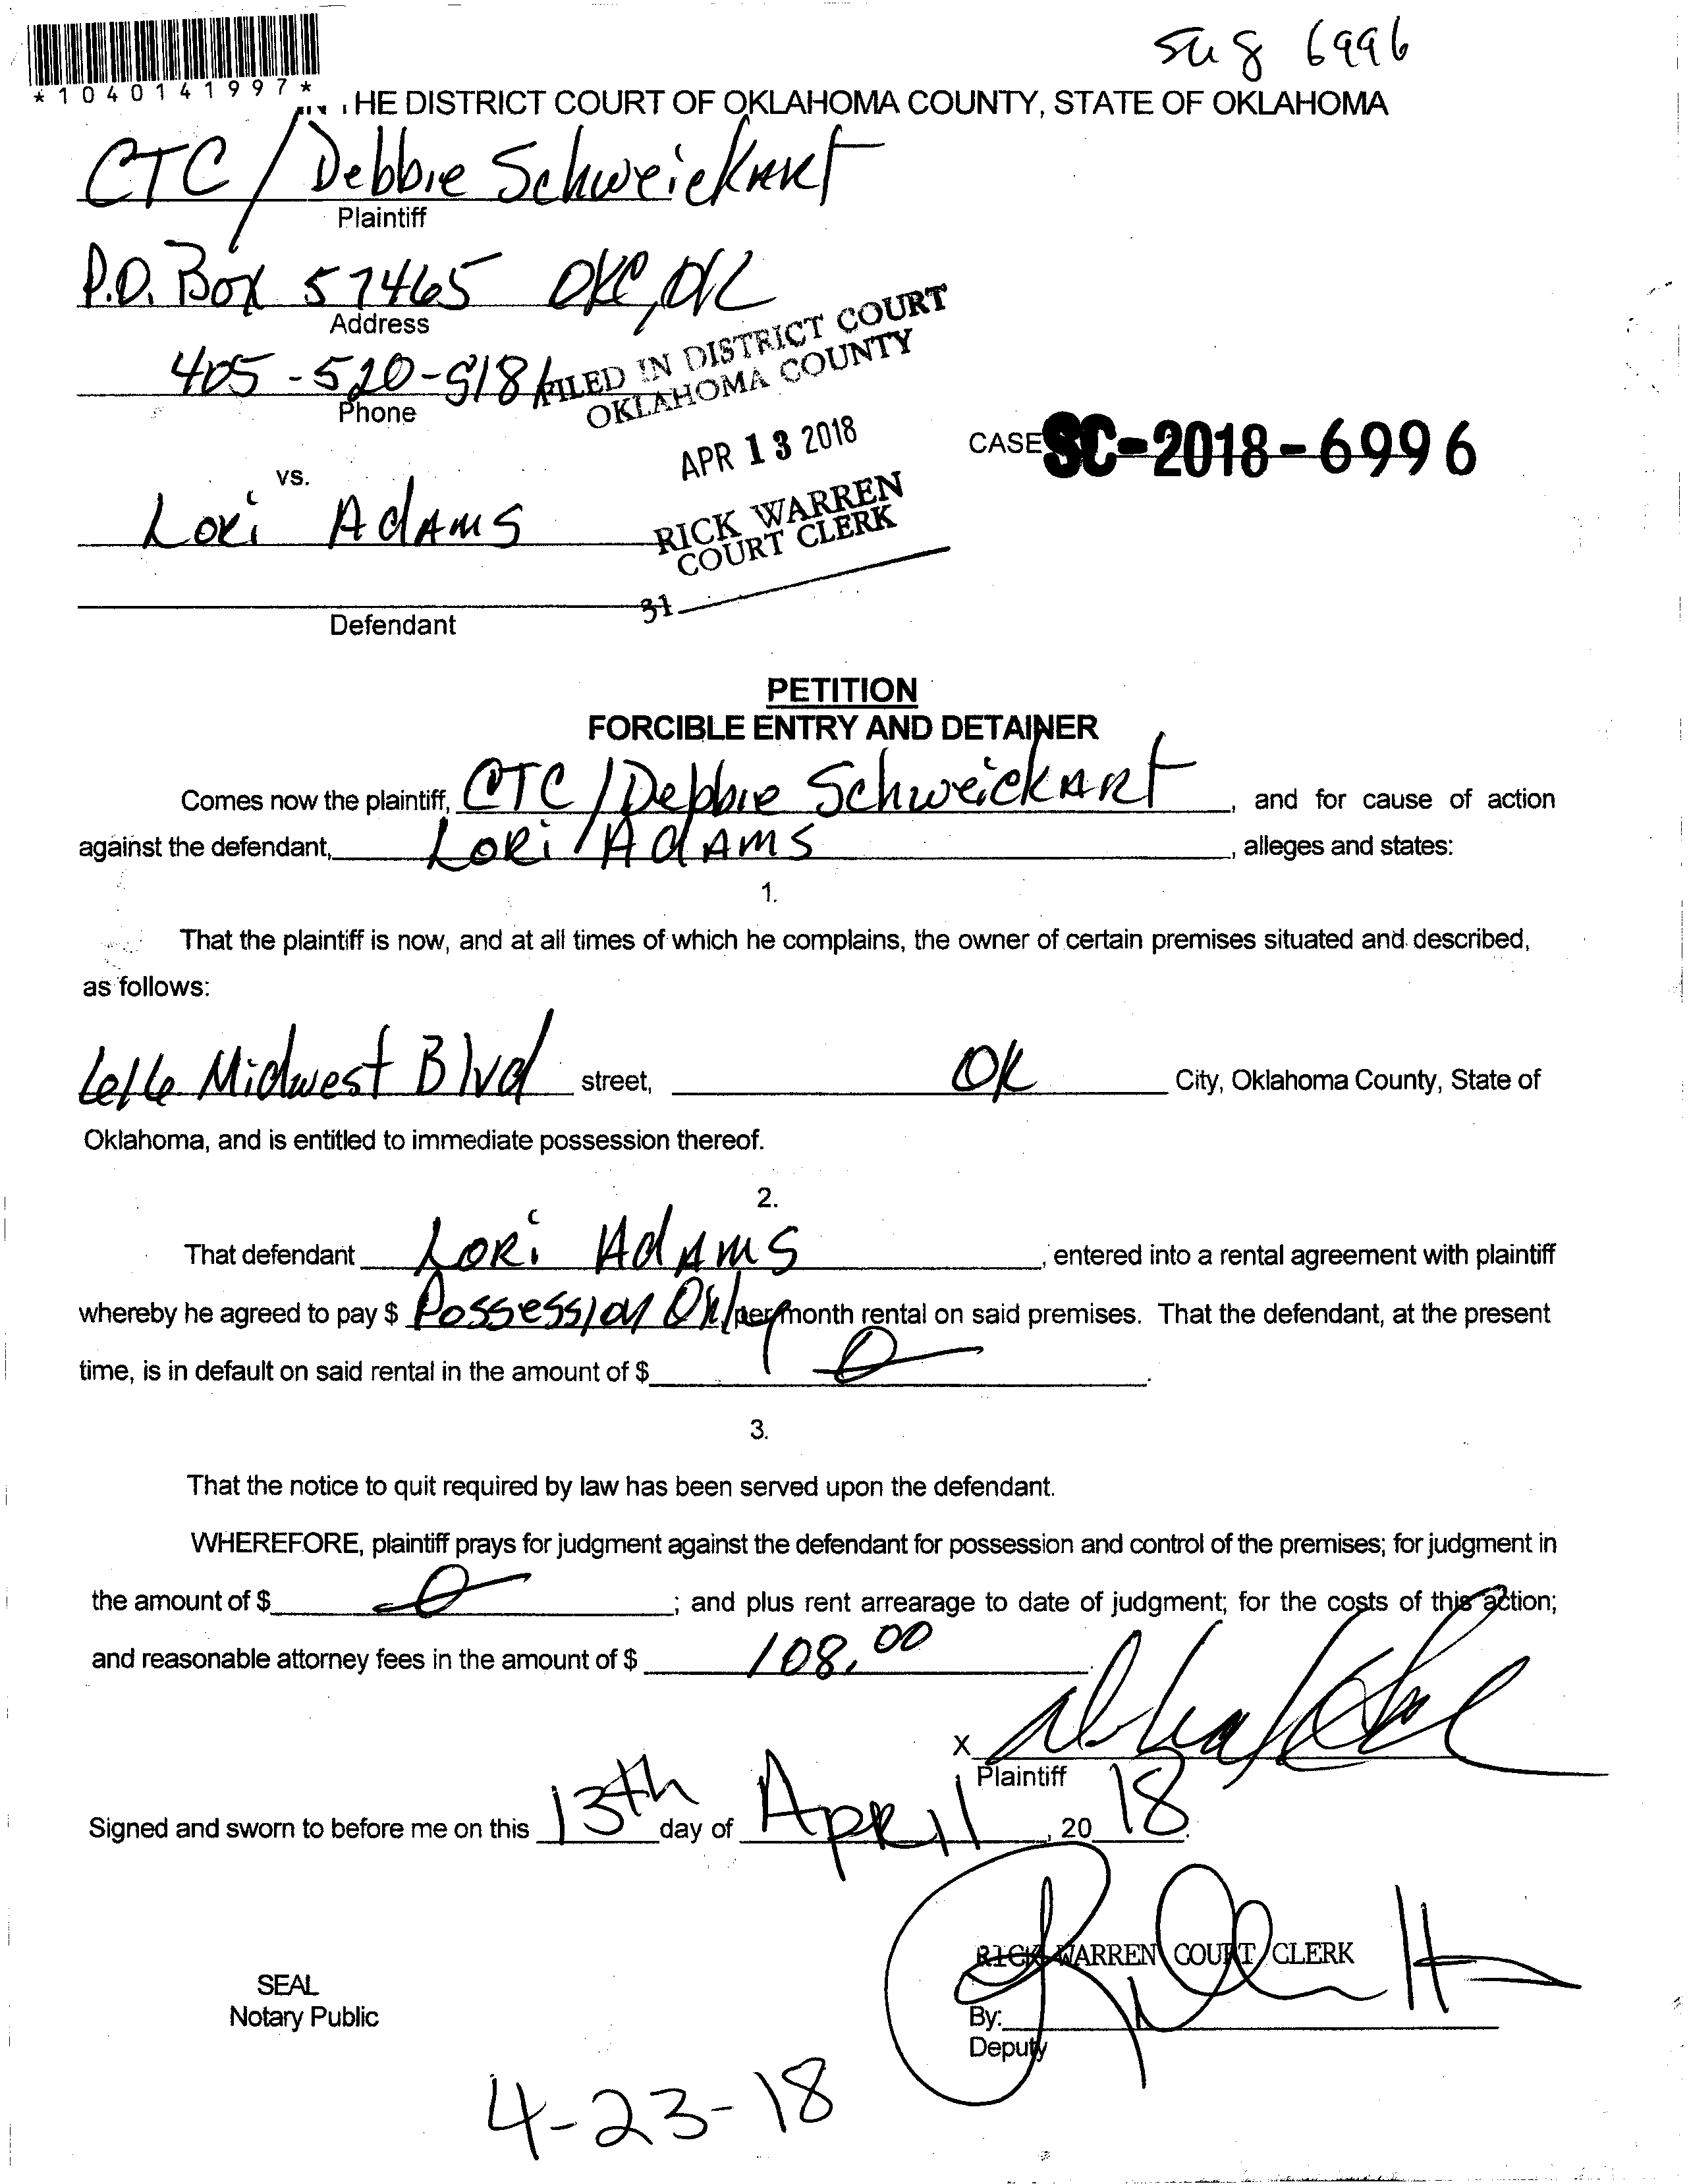 6996
*1040141997*
HE DISTRICT COURT OF OKLAHOMA COUNTY, STATE OF OKLAHOMA
CTC / Debbie Schweickart
Plaintiff
P.O. Box 57465 OKC, OK
Address
405-520-8181
Phone
FILED IN DISTRICT COURT
OKLAHOMA COUNTY
APR 13 2018
RICK WARREN
COURT CLERK
31
CASE SC-2018-6996
vs.
Lori Adams
Defendant
PETITION
FORCIBLE ENTRY AND DETAINER
Comes now the plaintiff, CTC / Debbie Schweickart, and for cause of action
against the defendant, Lori Adams, alleges and states:
1.
That the plaintiff is now, and at all times of which he complains, the owner of certain premises situated and described,
as follows:
Midwest Blvd street, OK City, Oklahoma County, State of
Oklahoma, and is entitled to immediate possession thereof.
2.
That defendant Lori Adams, entered into a rental agreement with plaintiff
whereby he agreed to pay $ Possession Only per month rental on said premises. That the defendant, at the present
time, is in default on said rental in the amount of $ 0.
3.
That the notice to quit required by law has been served upon the defendant.
WHEREFORE, plaintiff prays for judgment against the defendant for possession and control of the premises; for judgment in
the amount of $ 0; and plus rent arrearage to date of judgment; for the costs of this action;
and reasonable attorney fees in the amount of $ 108.00.
X
Plaintiff
Signed and sworn to before me on this 13th day of April, 20 18.
RICK WARREN COURT CLERK
SEAL
Notary Public
By:
Deputy
4-23-18